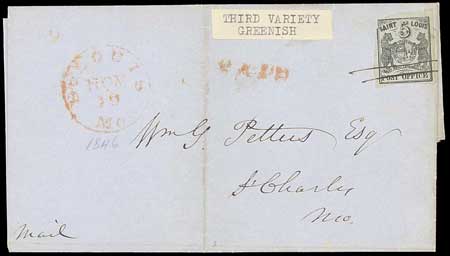 THIRD VARIETY
GREENISH
SAINT LOUIS
5
POST OFFICE
PAID
ST. LOUIS
NOV
19
MO.
1846
Wm G. Pettus Esq
St Charles
Mo.
Mail